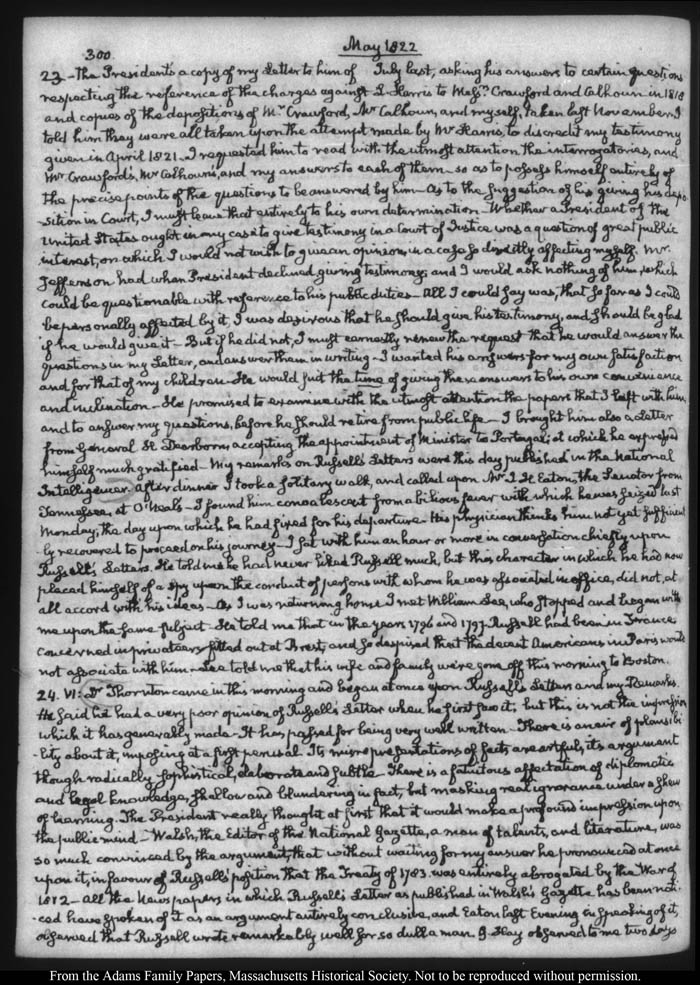 300.
May 1822
23 - The President a copy of my Letter to him of July last, asking his answers to certain questions
respecting the reference of the charges against L. Harris to Messrs. Crawford and Calhoun in 1818
and copies of the depositions of Mr. Crawford, Mr Calhoun, and myself, taken last November. I
told him they were all taken upon the attempt made by Mr Harris, to discredit my testimony
given in April 1821. I requested him to read with the utmost attention the interrogatories, and
Mr. Crawford's, Mr Calhoun's, and my answers to each of them - so as to possess himself entirely of
the precise points of the questions to be answered by him - As to the suggestion of his giving his depo
-sition in Court, I must leave that entirely to his own determination - Whether a President of the
United States ought in any case to give testimony in a Court of Justice was a question of great public
interest, on which I would not wish to give an opinion, in a case so directly affecting myself. Mr.
Jefferson had when President declined giving testimony; and I would ask nothing of him, which
could be questionable with reference to his public duties - All I could say was, that so far as I could
be personally affected by it, I was desirous that he should give his testimony, and should be glad
if he would give it - But if he did not, I must earnestly renew the request that he would answer the
questions in my Letter, and answer them in writing - I wanted his answers for my own satisfaction
and for that of my children - He would suit the time of giving these answers to his own convenience
and inclination - He promised to examine with the utmost attention the papers that I left with him,
and to answer my questions, before he should retire from public life - I brought him also a Letter
from General H. Dearborn, accepting the appointment of Minister to Portugal; at which he expressed
himself much gratified - My remarks on Russell's Letters were this day published in the National
Intelligencer. After dinner I took a solitary walk, and called upon Mr J. H. Eaton, the Senator from
Tennessee, at O'Neal's - I found him convalescent from a bilious fever with which he was seized last
Monday, the day upon which he had fixed for his departure. His physician thinks him not yet sufficient
-ly recovered to proceed on his journey - I sat with him an hour or more in conversation chiefly upon
Russell's Letters. He told me he had never liked Russell much, but this character in which he had now
placed himself of a spy upon the conduct of persons with whom he was associated in office, did not, at
all accord with his ideas - As I was returning home I met William Lee, who stopped and began with
me upon the same subject - He told me that in the years 1796 and 1797 Russell had been in France
concerned in privateers fitted out at Brest, and so despised that the decent Americans in Paris would
not associate with him - Lee told me that his wife and family were gone off this morning to Boston.
24. VI: Dr Thornton came in this morning and began at once upon Russell's Letters and my Remarks.
He said he had a very poor opinion of Russell's Letter when he first saw it; but this is not the impression
which it has generally made - It has passed for being very well written - There is an air of plausibi
-lity about it, imposing at a first perusal. Its misrepresentations of facts are artful, its argument
though radically sophistical, elaborate and subtle - There is a fatuitous affectation of diplomatic
and legal knowledge, shallow and blundering in fact, but masking real ignorance under a shew
of learning. The President really thought at first that it would make a profound impression upon
the public mind - Walsh, the Editor of the National Gazette, a man of talents, and literature, was
so much convinced by the argument, that without waiting for my answer he pronounced at once
upon it, in favour of Russell's position that the Treaty of 1783. was entirely abrogated by the War of
1812 - All the Newspapers in which Russell's Letter as published in Walsh's Gazette has been noti
-ced have spoken of it as an argument entirely conclusive, and Eaton last Evening in speaking of it,
observed that Russell wrote remarkably well for so dull a man. G. Hay observed to me two days
From the Adams Family Papers, Massachusetts Historical Society. Not to be reproduced without permission.